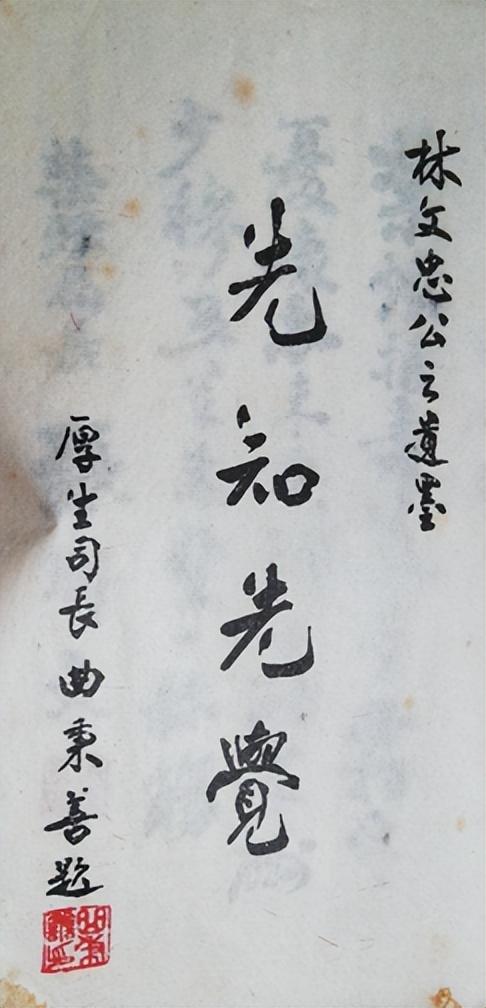 林文忠公之遺墨
先知先覺
厚生司長曲秉善題